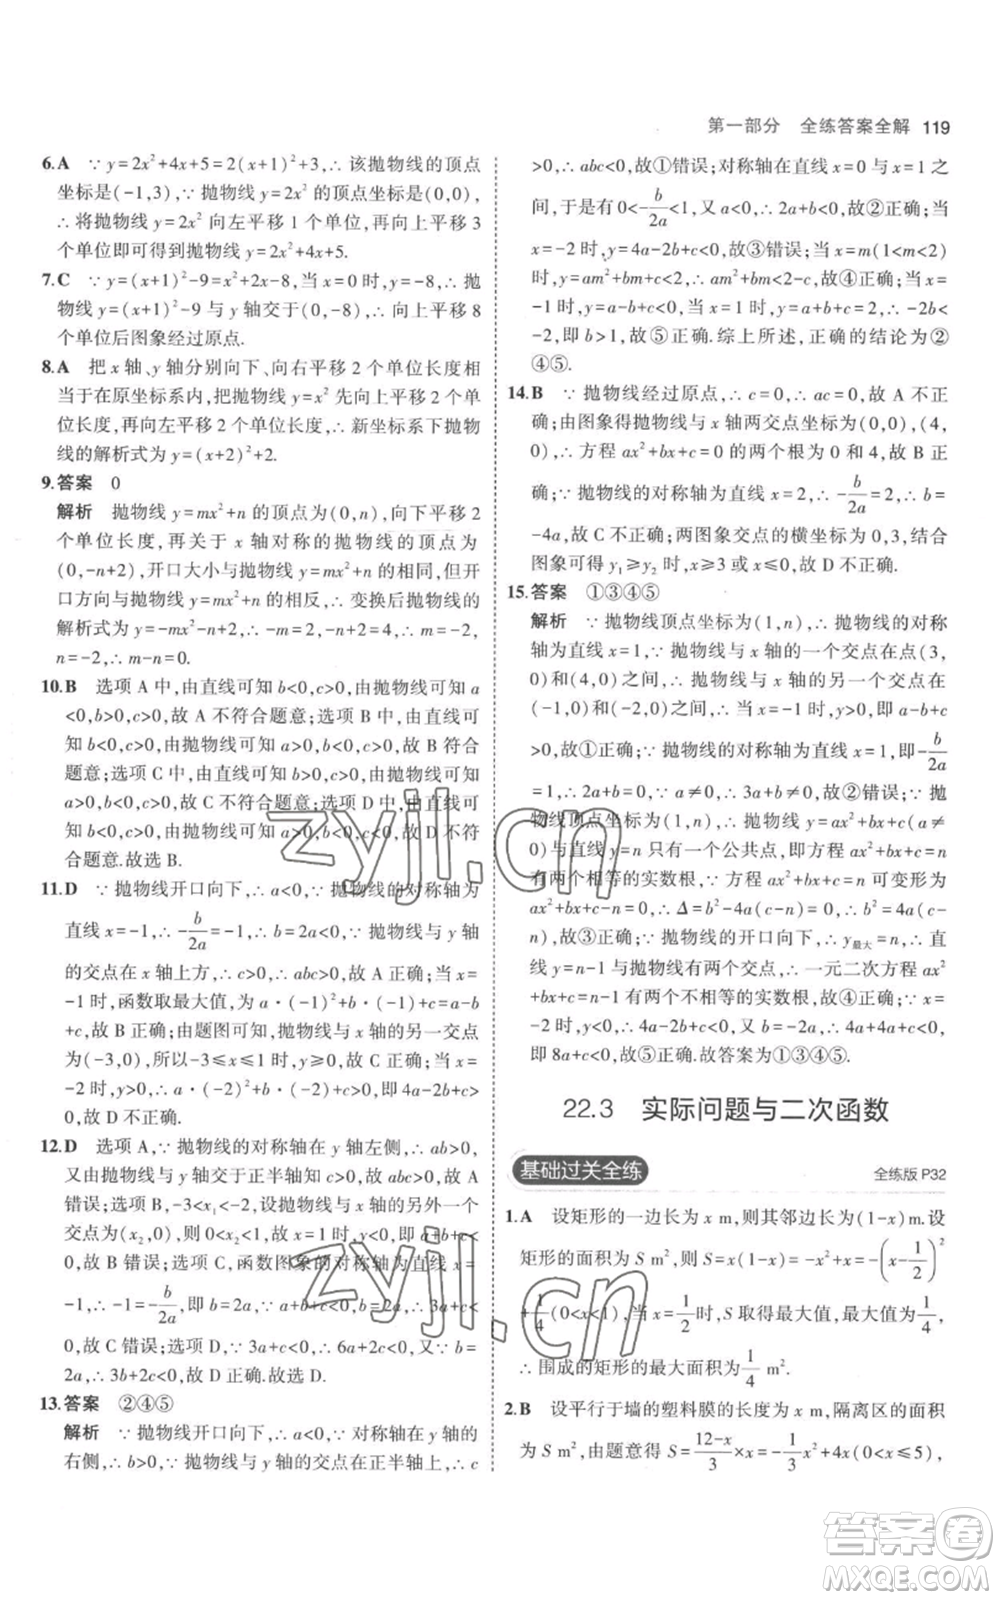 第一部分 全练答案全解 119
6.A ∵ y=2x²+4x+5=2(x+1)²+3,∴ 该抛物线的顶点
坐标是(-1,3),∵ 抛物线 y=2x² 的顶点坐标是(0,0),
∴ 将抛物线 y=2x² 向左平移 1 个单位,再向上平移 3
个单位即可得到抛物线 y=2x²+4x+5.
7.C ∵ y=(x+1)²-9=x²+2x-8,当 x=0 时,y=-8,∴ 抛
物线 y=(x+1)²-9 与 y 轴交于(0,-8),∴ 向上平移 8
个单位后图象经过原点.
8.A 把 x 轴、y 轴分别向下、向右平移 2 个单位长度相
当于在原坐标系内,把抛物线 y=x² 先向上平移 2 个单
位长度,再向左平移 2 个单位长度,∴ 新坐标系下抛物
线的解析式为 y=(x+2)²+2.
9.答案 0
解析 抛物线 y=mx²+n 的顶点为(0,n),向下平移 2
个单位长度,再关于 x 轴对称的抛物线的顶点为
(0,-n+2),开口大小与抛物线 y=mx²+n 相同,但开
口方向与抛物线 y=mx²+n 相反,∴ 变换后抛物线的
解析式为 y=-mx²-n+2,∴ -m=-2,∴ m=2,
n=-2,∴ m+n=0.
10.B 选项 A 中,由直线可知 b<0,c>0,由抛物线可知 a
<0,b>0,故 A 不符合题意;选项 B 中,由直线可
知 b<0,c>0,由抛物线可知 a>0,b<0,故 B 符合
题意;选项 C 中,由直线可知 b>0,c>0,由抛物线可知
a>0,b<0,故 C 不符合题意;选项 D 中,由直线可
知 b>0,c>0,由抛物线可知 a>0,b<0,故 D 不符
合题意.故选 B.
11.D ∵ 抛物线开口向下,∴ a<0,∵ 抛物线的对称轴为
直线 x=-1,∴ -b/2a=-1,∴ b=2a<0,∵ 抛物线与 y 轴
的交点在 x 轴上方,∴ c>0,∴ abc>0,故 A 正确;当 x=
-1 时,函数取最大值,为 a·(-1)²+b·(-1)+c=a-b
+c,故 B 正确;由题图可知,抛物线与 x 轴的另一交点
为(-3,0),所以-3≤x≤1 时,y≥0,故 C 正确;当 x=
-2 时,y>0,∴ a·(-2)²+b·(-2)+c>0,∴ 4a-2b+c
>0,故 D 不正确.
12.D 选项 A,∵ 抛物线的对称轴在 y 轴左侧,∴ ab>0,
又由抛物线与 y 轴交于正半轴知 c>0,∴ abc>0,故
A 错误;选项 B,∵ -3<x₁<-2,设抛物线与 x 轴的另一个
交点为(x₂,0),则 0<x₂<1,∴ 当 x=1 时,y=a+b+c<
0,故 B 错误;选项 C,∵ 函数图象的对称轴为直线 x=
-1,∴ -1=-b/2a,即 b=2a,∵ a+b+c<0,∴ 3a+c<
0,故 C 错误;选项 D,∵ 3a+c<0,∴ 6a+2c<0,∵ b=
2a,∴ 3b+2c<0,故 D 正确.故选 D.
13.答案 ②④⑤
解析 ∵ 抛物线开口向下,∴ a<0,∵ 对称轴在 y 轴的
右侧,∴ b>0,∵ 抛物线与 y 轴的交点在正半轴上,∴ c
>0,∴ abc<0,故①错误;对称轴在直线 x=0 与 x=1 之
间,于是有 0<-b/2a<1,又 a<0,∴ 2a+b<0,故②正确;当
x=-2 时,y=4a-2b+c<0,故③错误;当 x=m(1<m<2)
时,y=am²+bm+c<2,∴ am²+bm<2-c,故④正确;当 x=
-1 时,y=a-b+c<0,x=1 时,y=a+b+c=2,∴ -2b<
-2,即 b>1,故⑤正确.综上所述,正确的结论为②
④⑤.
14.B ∵ 抛物线经过原点,∴ c=0,∴ ac=0,故 A 不正
确;由图象得抛物线与 x 轴两交点坐标为(0,0),(4,
0),∴ 方程 ax²+bx+c=0 的两个根为 0 和 4,故 B 正
确;∵ 抛物线的对称轴为直线 x=2,∴ -b/2a=2,∴ b=
-4a,故 C 不正确;两图象交点的横坐标为 0,3,结合
图象可得 y₁≥y₂ 时,x≥3 或 x≤0,故 D 不正确.
15.答案 ①③④⑤
解析 ∵ 抛物线顶点坐标为(1,n),∴ 抛物线的对称
轴为直线 x=1,∵ 抛物线与 x 轴的一个交点在点(3,
0)和(4,0)之间,∴ 抛物线与 x 轴的另一个交点在
(-1,0)和(-2,0)之间,∴ 当 x=-1 时,y>0,即 a-b+c
>0,故①正确;∵ 抛物线的对称轴为直线 x=1,即-b/2a
=1,∴ 2a+b=0,∵ a≠0,∴ 3a+b≠0,故②错误;∵ 抛
物线顶点坐标为(1,n),∴ 抛物线 y=ax²+bx+c(a≠
0)与直线 y=n 有一个公共点,∴ 方程 ax²+bx+c=n
有两个相等的实数根,∵ 方程 ax²+bx+c=n 可变形为
ax²+bx+c-n=0,∴ Δ=b²-4a(c-n)=0,∴ b²=4a(c-
n),故③正确;∵ 抛物线的开口向下,∴ y最大=n,∴ 直
线 y=n-1 与抛物线有两个交点,∴ 一元二次方程 ax²
+bx+c=n-1 有两个不相等的实数根,故④正确;当 x=
-2 时,y<0,∴ 4a-2b+c<0,∵ 2a+b=0,∴ 4a+4a+c<0,
即 8a+c<0,故⑤正确.故答案为①③④⑤.
22.3 实际问题与二次函数
基础过关全练 全练版 P32
1.A 设矩形的一边长为 x m,则其邻边长为(1-x)m.设
矩形的面积为 S m²,则 S=x(1-x)=-x²+x=-(x-1/2)²
+1/4(0<x<1),当 x=1/2时,S 取得最大值,最大值为1/4,
∴ 围成的矩形的最大面积为1/4 m².
2.B 设平行于墙的塑料膜的长度为 x m,隔离区的面积
为 S m²,由题意得 S=12-x/3×x=-1/3x²+4x(0<x≤5),
zyjl.cn
zyjl.cn
答案圈
MXQE.COM